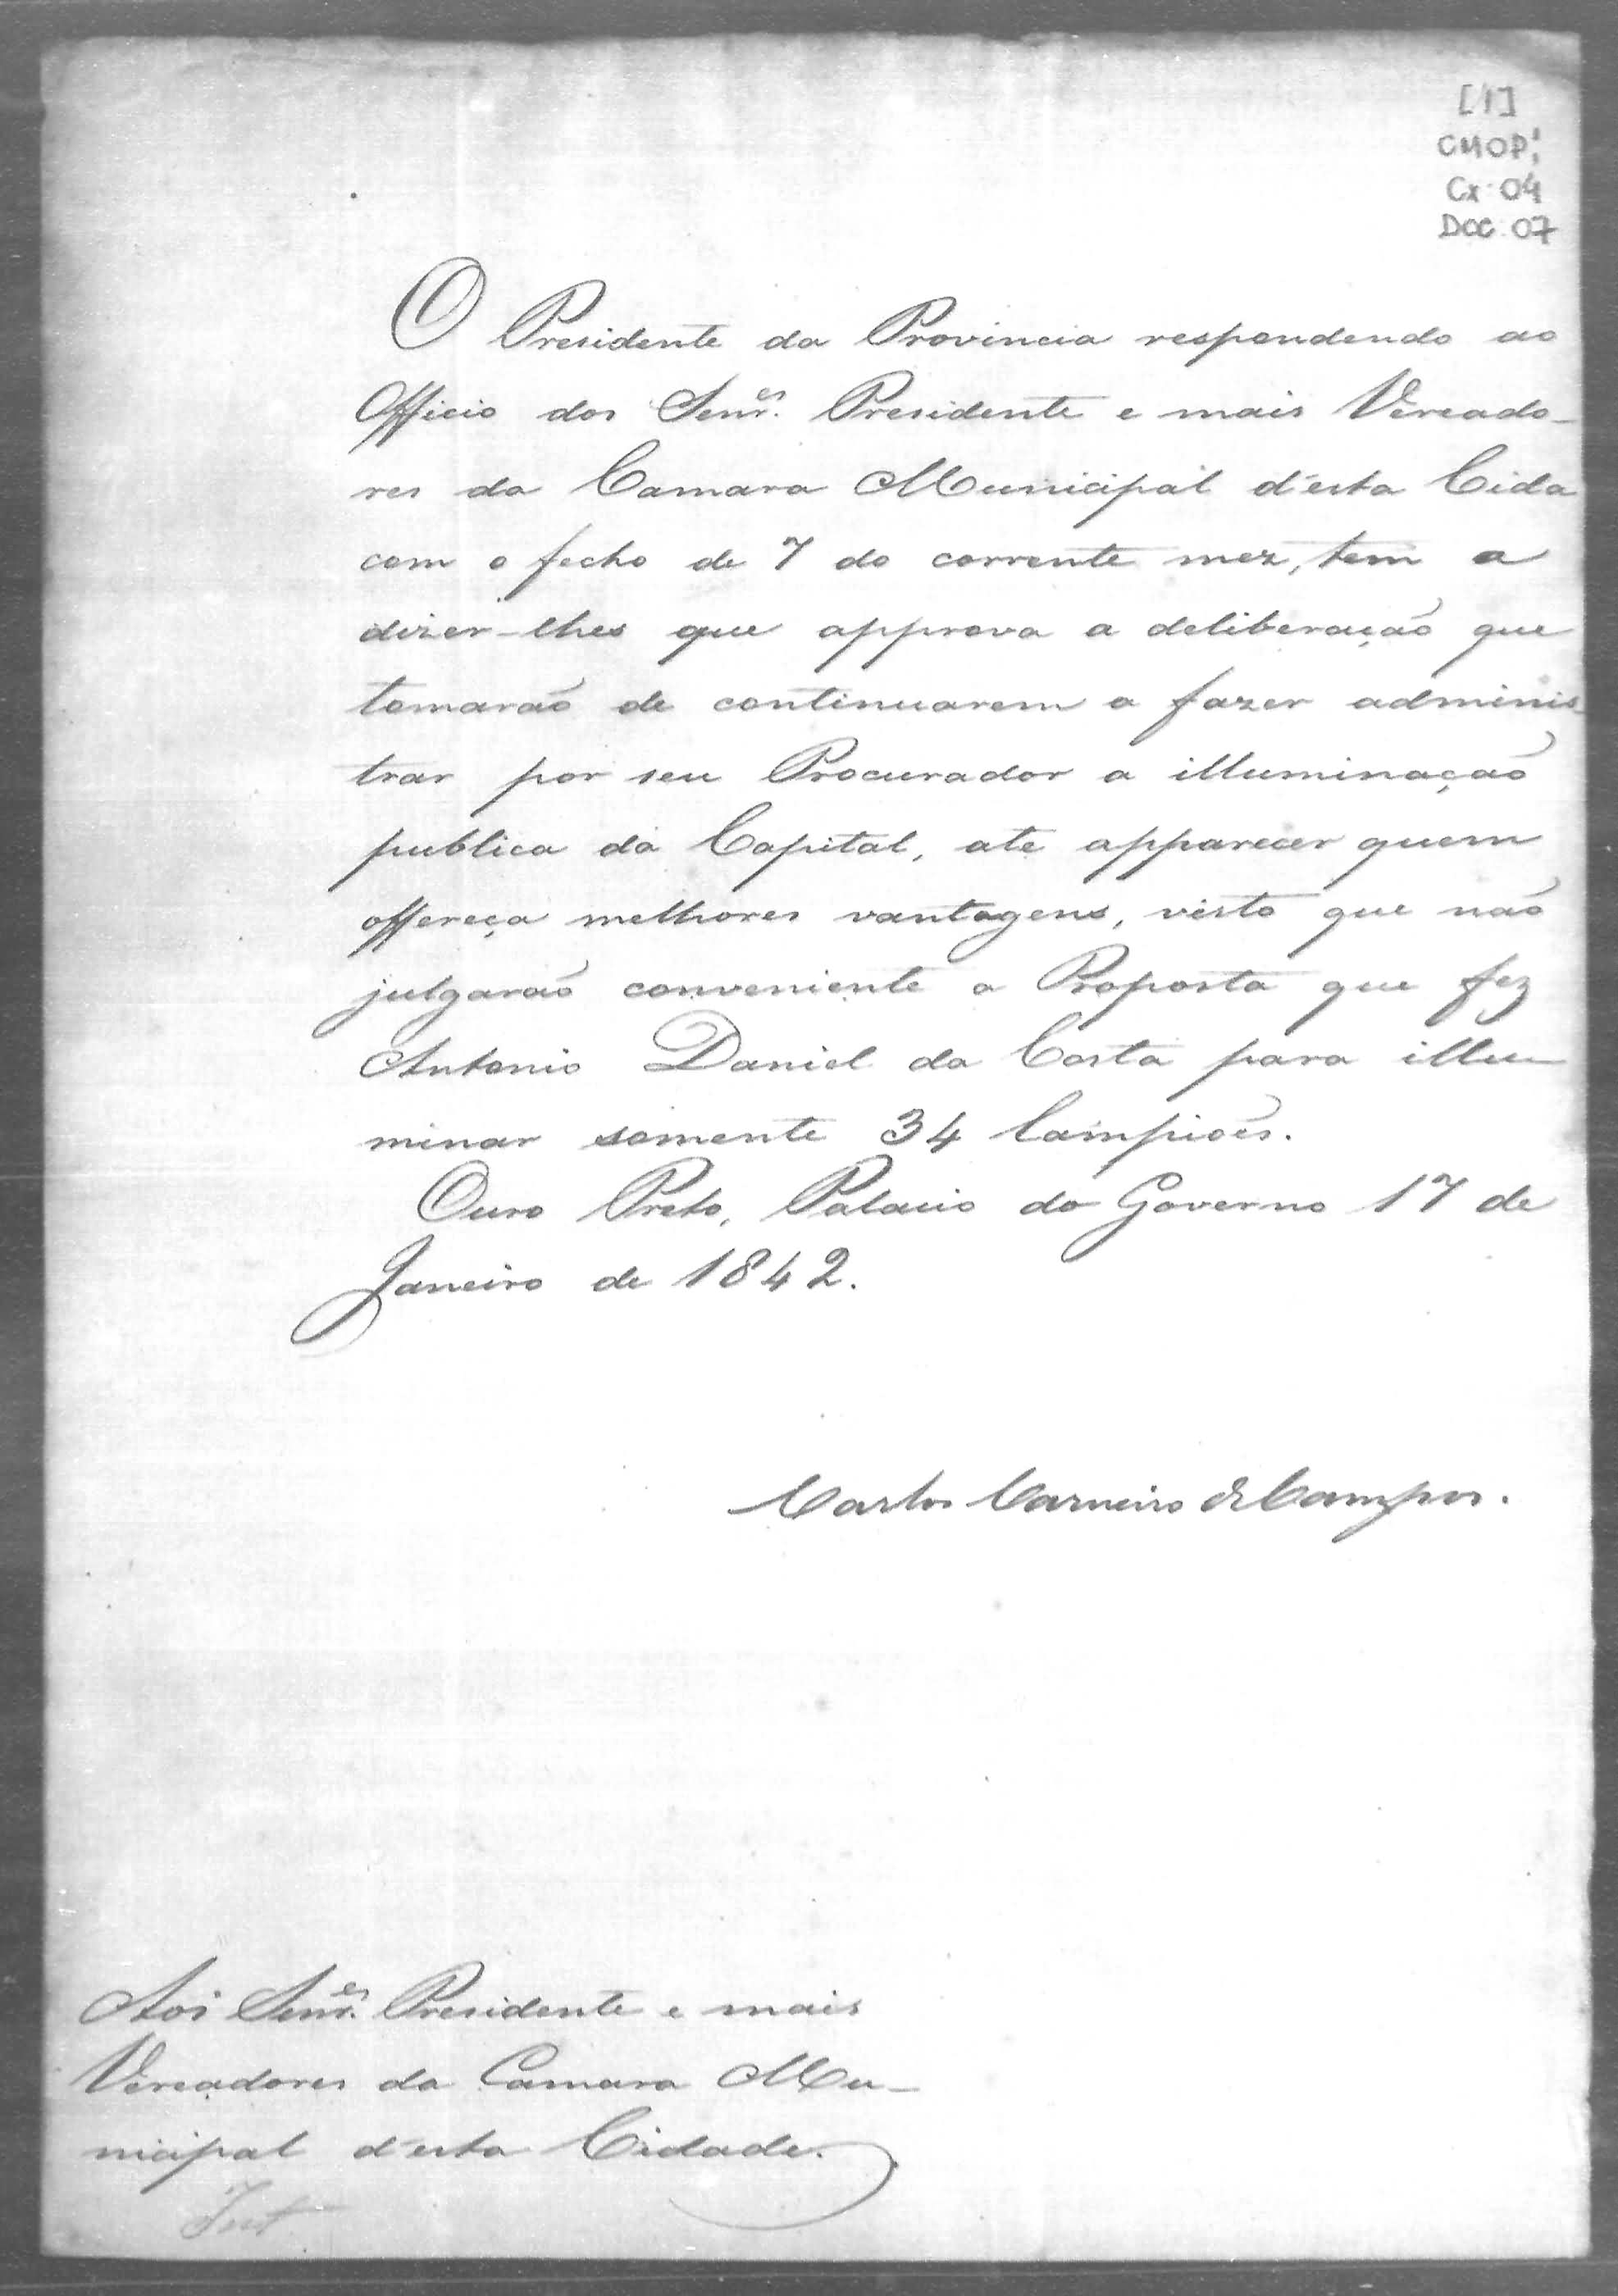 [1]
CMOP;
Cx: 04
DOC. 07
O Presidente da Provincia respondendo ao
Officio dos Senr.es Presidente e mais Vereado-
res da Camara Municipal d'esta Cida
com o fecho de 7 do corrente mez, tem a
dizer-lhes que approva a deliberação que
tomarão de continuarem a fazer adminis-
trar por seu Procurador a illuminação
publica da Capital, ate apparecer quem
offereça melhores vantagens, visto que não
julgarão conveniente a Proposta que fez
Antonio Daniel da Costa para illu-
minar somente 34 Lampiões.
Ouro Preto, Palacio do Governo 17 de
Janeiro de 1842.
Carlos Carneiro de Campos.
Aos Senr.es Presidente e mais
Vereadores da Camara Mu-
nicipal d'esta Cidade.